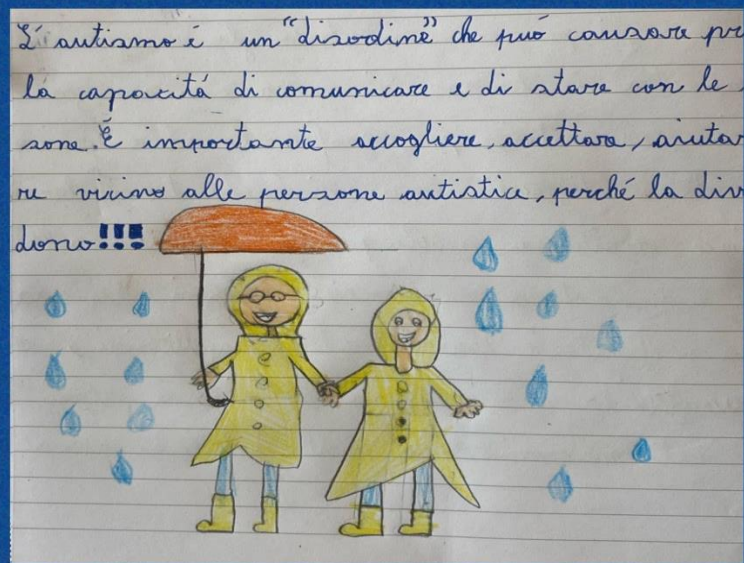 L'autismo è un "disordine" che può causare pr
la capacitá di comunicare e di stare con le
sone. È importante accogliere, accettare, aiutar
re vicino alle persone autistice, perché la div
dono!!!